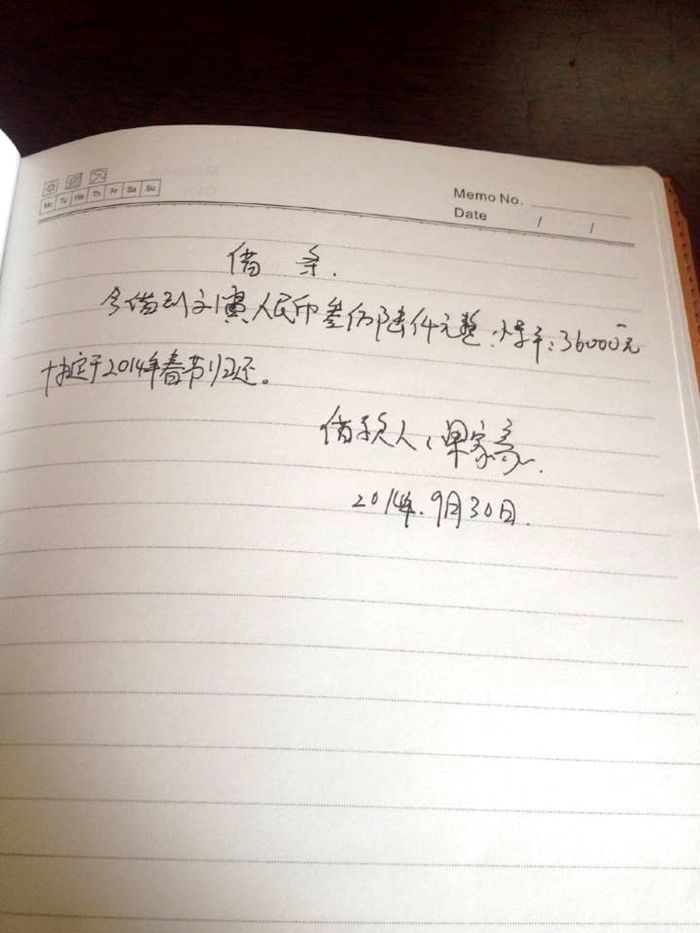 Mo Tu We Th Fr Sa Su
Memo No.
Date / /
借 条.
今借到刘演人民币叁仟陆仟元整.小写:36000元
拟定于2014年春节归还。
借款人:梁家豪.
2014年.9月30日.